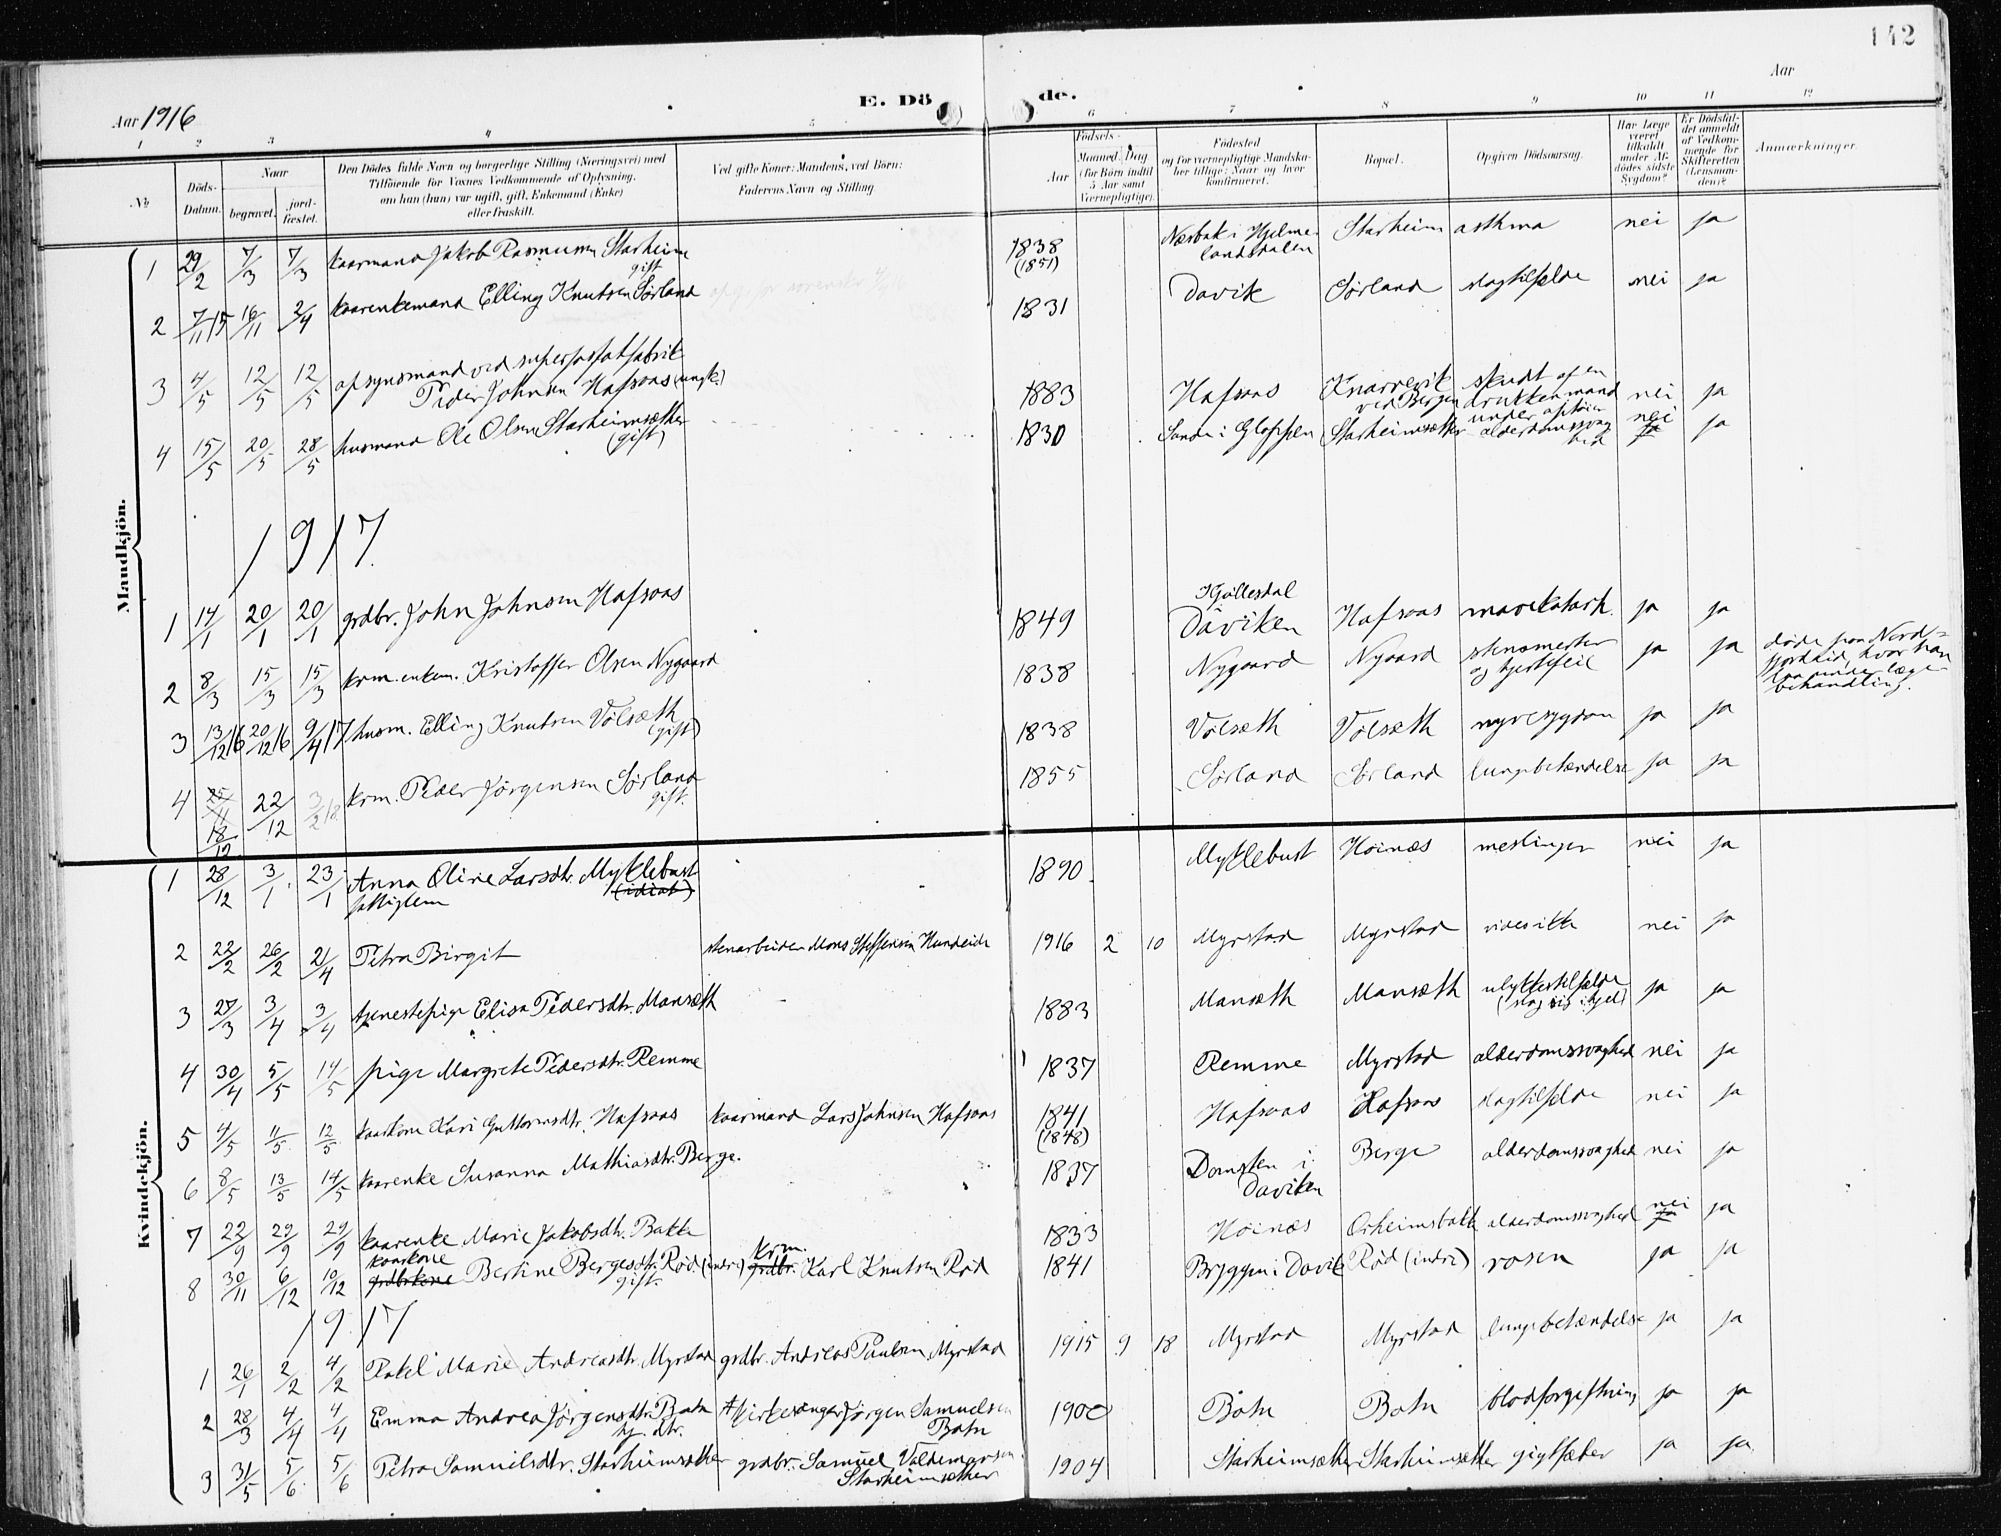 142
Aar 1916
E. Dö
de.
Aar
1 2 3 4 5 6 7 8 9 10 11 12
No
Döds-
Datum.
Naar
begravet.
jord-
fæstet.
Den Dödes fulde Navn og borgerlige Stilling (Næringsvei) med
Tilföiende for Voxnes Vedkommende af Oplysning,
om han (hun) var ugift, gift, Enkemand (Enke)
eller fraskilt.
Ved gifte Koner: Mandens, ved Börn:
Faderens Navn og Stilling
Födsels-
Aar
Maaned. Dag
(for Börn indtil
5 Aar samt
Værnepligtige).
Födested
og for værnepligtige Mandska-
ber tillige: Naar og hvor
konfirmeret.
Bopæl.
Opgiven Dödsaarsag.
Har Læge
været
tilkaldt
under Af-
dödes sidste
Sygdom?
Er Dödsfal-
det anmeldt
af Vedkom-
mende for
Skifteretten
(Lensman-
den)?
Anmærkninger.
Mandkjön.
1 29/2 7/3 7/3 kaarmand Jakob Rasmussen Starheim gift 1838 (1851) Næsbak i Hjelme-landsdalen Starheim asthma nei ja
2 7/11 15 16/11 2/4 kaarenkemand Elling Knutsen Sørland 1831 Davik Sørland slagtilfælde nei ja
3 4/5 12/5 12/5 opsynsmand ved superfosfatfabrik
Peder Johnsen Hafsaas (ungk.) 1883 Hafsaas Knarrevik ved Bergen skudt af en drukkenmand under nei ja
4 15/5 20/5 28/5 husmand Ole Olsen Starheimsæther (gift) 1830 Sande i Gloppen Starheimsæther alderdomssvaghed nei ja ja
1917.
1 14/1 20/1 20/1 grdbr. John Johnsen Hafsaas 1849 Kjøllesdal Daviken Hafsaas mavekatarh. ja ja
2 8/3 15/3 15/3 krm. enkem. Kristoffer Olsen Nygaard 1838 Nygaard Nygaard stensmerter og hjertefeil ja ja døde paa Nord-
fjordeid, hvor han
laa under læge-
behandling.
3 13/12 16 20/12 16 9/4 17 husm. Elling Knutsen Vølsæth (gift) 1838 Vølsæth Vølsæth nyresygdom ja ja
4 25/11 18/12 22/12 3/2 18 krm. Peder Jørgensen Sørland gift. 1855 Sørland Sørland lungebetændelse ja ja
Kvindekjön.
1 28/12 3/1 23/1 Anna Oline Larsdtr. Myklebust (idiot) fattiglem 1890 Myklebust Hoinæs meslinger nei ja
2 22/2 26/2 21/4 Petra Birgit stenarbeider Mons Steffensen Hundeide 1916 2 10 Myrstad Myrstad vides ikke nei ja
3 27/3 3/4 3/4 tjenestepige Elisa Pedersdtr. Mansæth 1883 Mansæth Mansæth ulykkestilfælde (slog sig ihjel) ja ja
4 30/4 5/5 14/5 pige Margrete Pedersdtr. Remme 1837 Remme Myrstad alderdomssvaghed nei ja
5 4/5 11/5 12/5 kaarkone Kari Guttormsdtr. Hafsaas kaarmand Lars Johnsen Hafsaas 1841 (1848) Hafsaas Hafsaas slagtilfælde nei ja
6 8/5 13/5 14/5 kaarenke Susanna Mathiasdtr. Berge. 1837 Domsten i Daviken Berge alderdomssvaghed nei ja
7 22/9 29/9 29/9 kaarenke Marie Jakobsdtr. Bakke 1833 Hoinæs Orheimsbakk alderdomssvaghed nei ja ja
8 30/11 6/12 10/12 kaarkone grdbrkone Bertine Bergesdtr. Rød (indre) gift. krm. grdbr. Karl Knutsen Rød 1841 Bryggen i Davik Rød (indre) rosen ja ja
1917
1 26/1 2/2 4/2 Rakel Marie Andreasdtr. Myrstad grdbr. Andreas Paulsen Myrstad 1915 9 18 Myrstad Myrstad lungebetændelse ja ja
2 28/3 4/4 4/4 Emma Andrea Jørgensdtr. Botn hj. dtr. kirkesanger Jørgen Samuelsen Botn 1900 Botn Botn blodforgiftning ja ja
3 31/5 5/6 5/6 Petra Samuelsdtr. Starheimsæther grdbr. Samuel Valdemarsen Starheimsæther 1904 Starheimsæther Starheimsæther gigtfeber ja ja